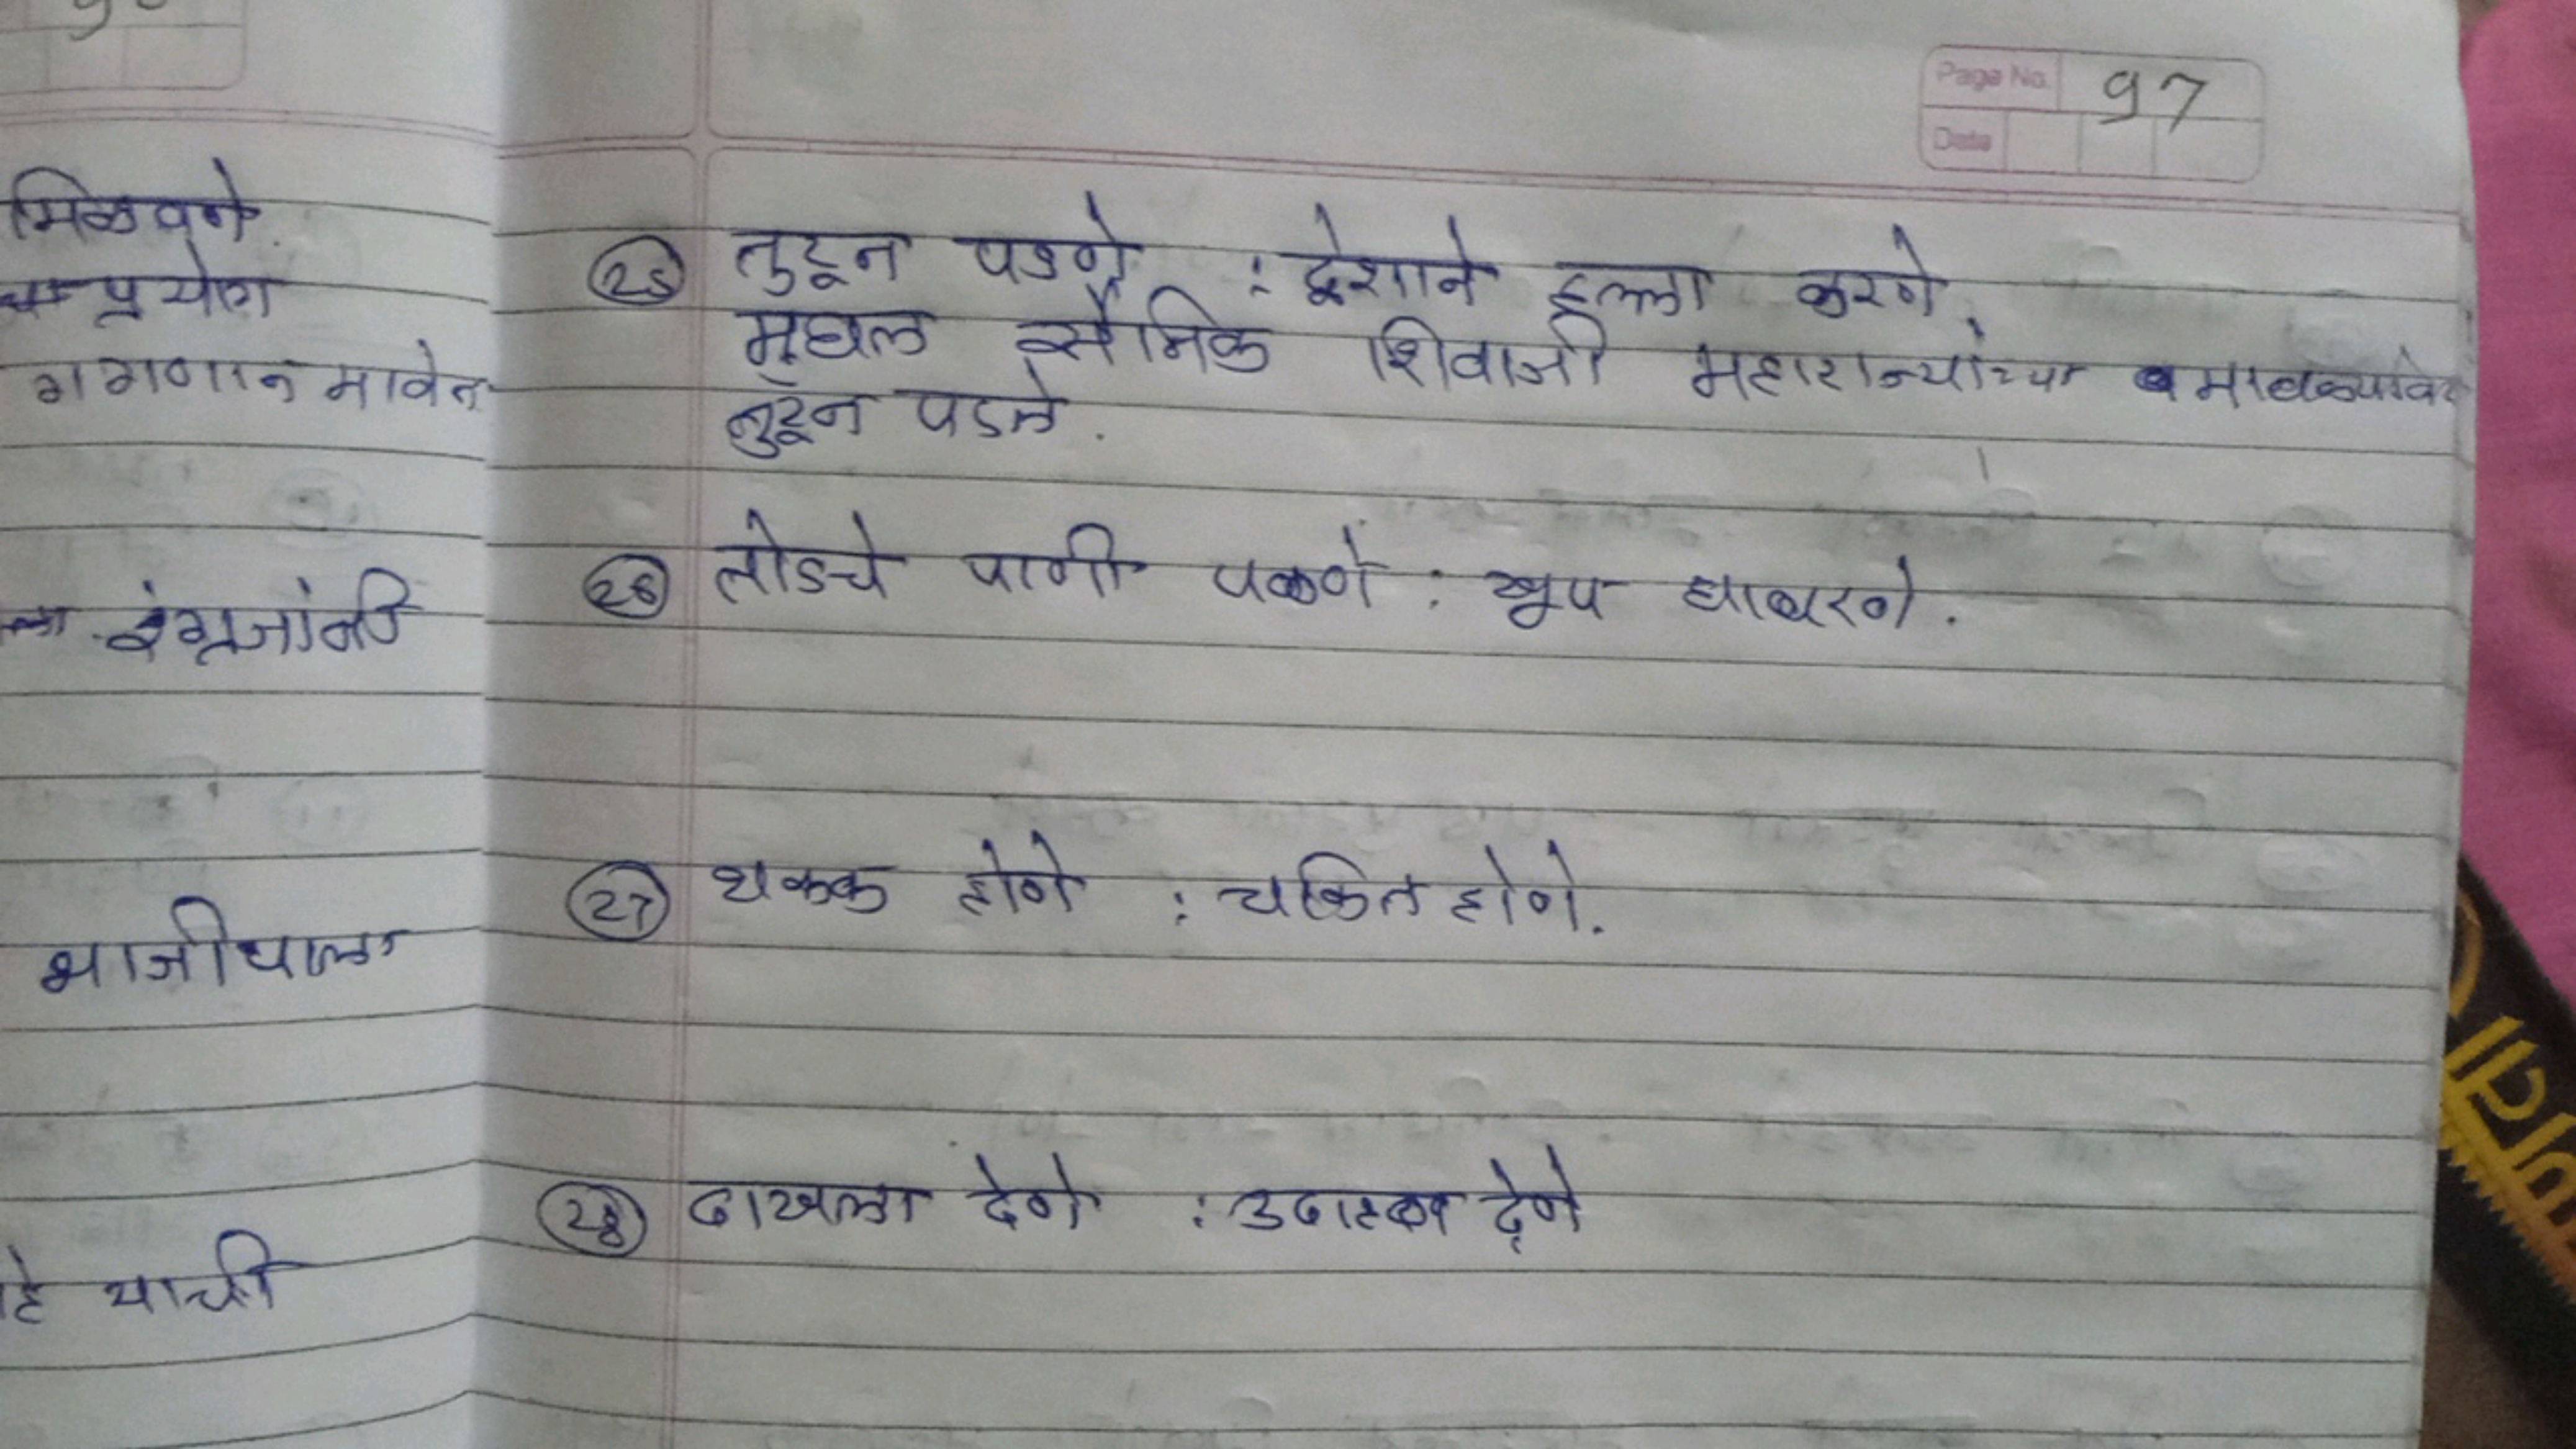 मिळवणे.
प्रयोग
गगणात मावेत
इंग्रजांनी
भाजीपाला
हे याची
Page No. 97
Date
25 तुटून पडणे : द्वेशाने हल्ला करणे.
मुघल सैनिक शिवाजी महाराज्यांच्या मावळ्यांवर
तुटून पडले.
26 तोंडचे पाणी पळणे : खूप घाबरणे.
27 थक्क होणे : चकित होणे.
28 दाखला देणे : देणे